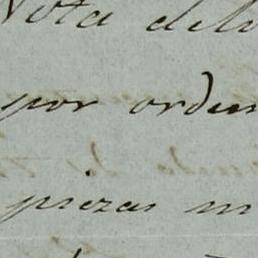 Nota del
por orden
piezas m